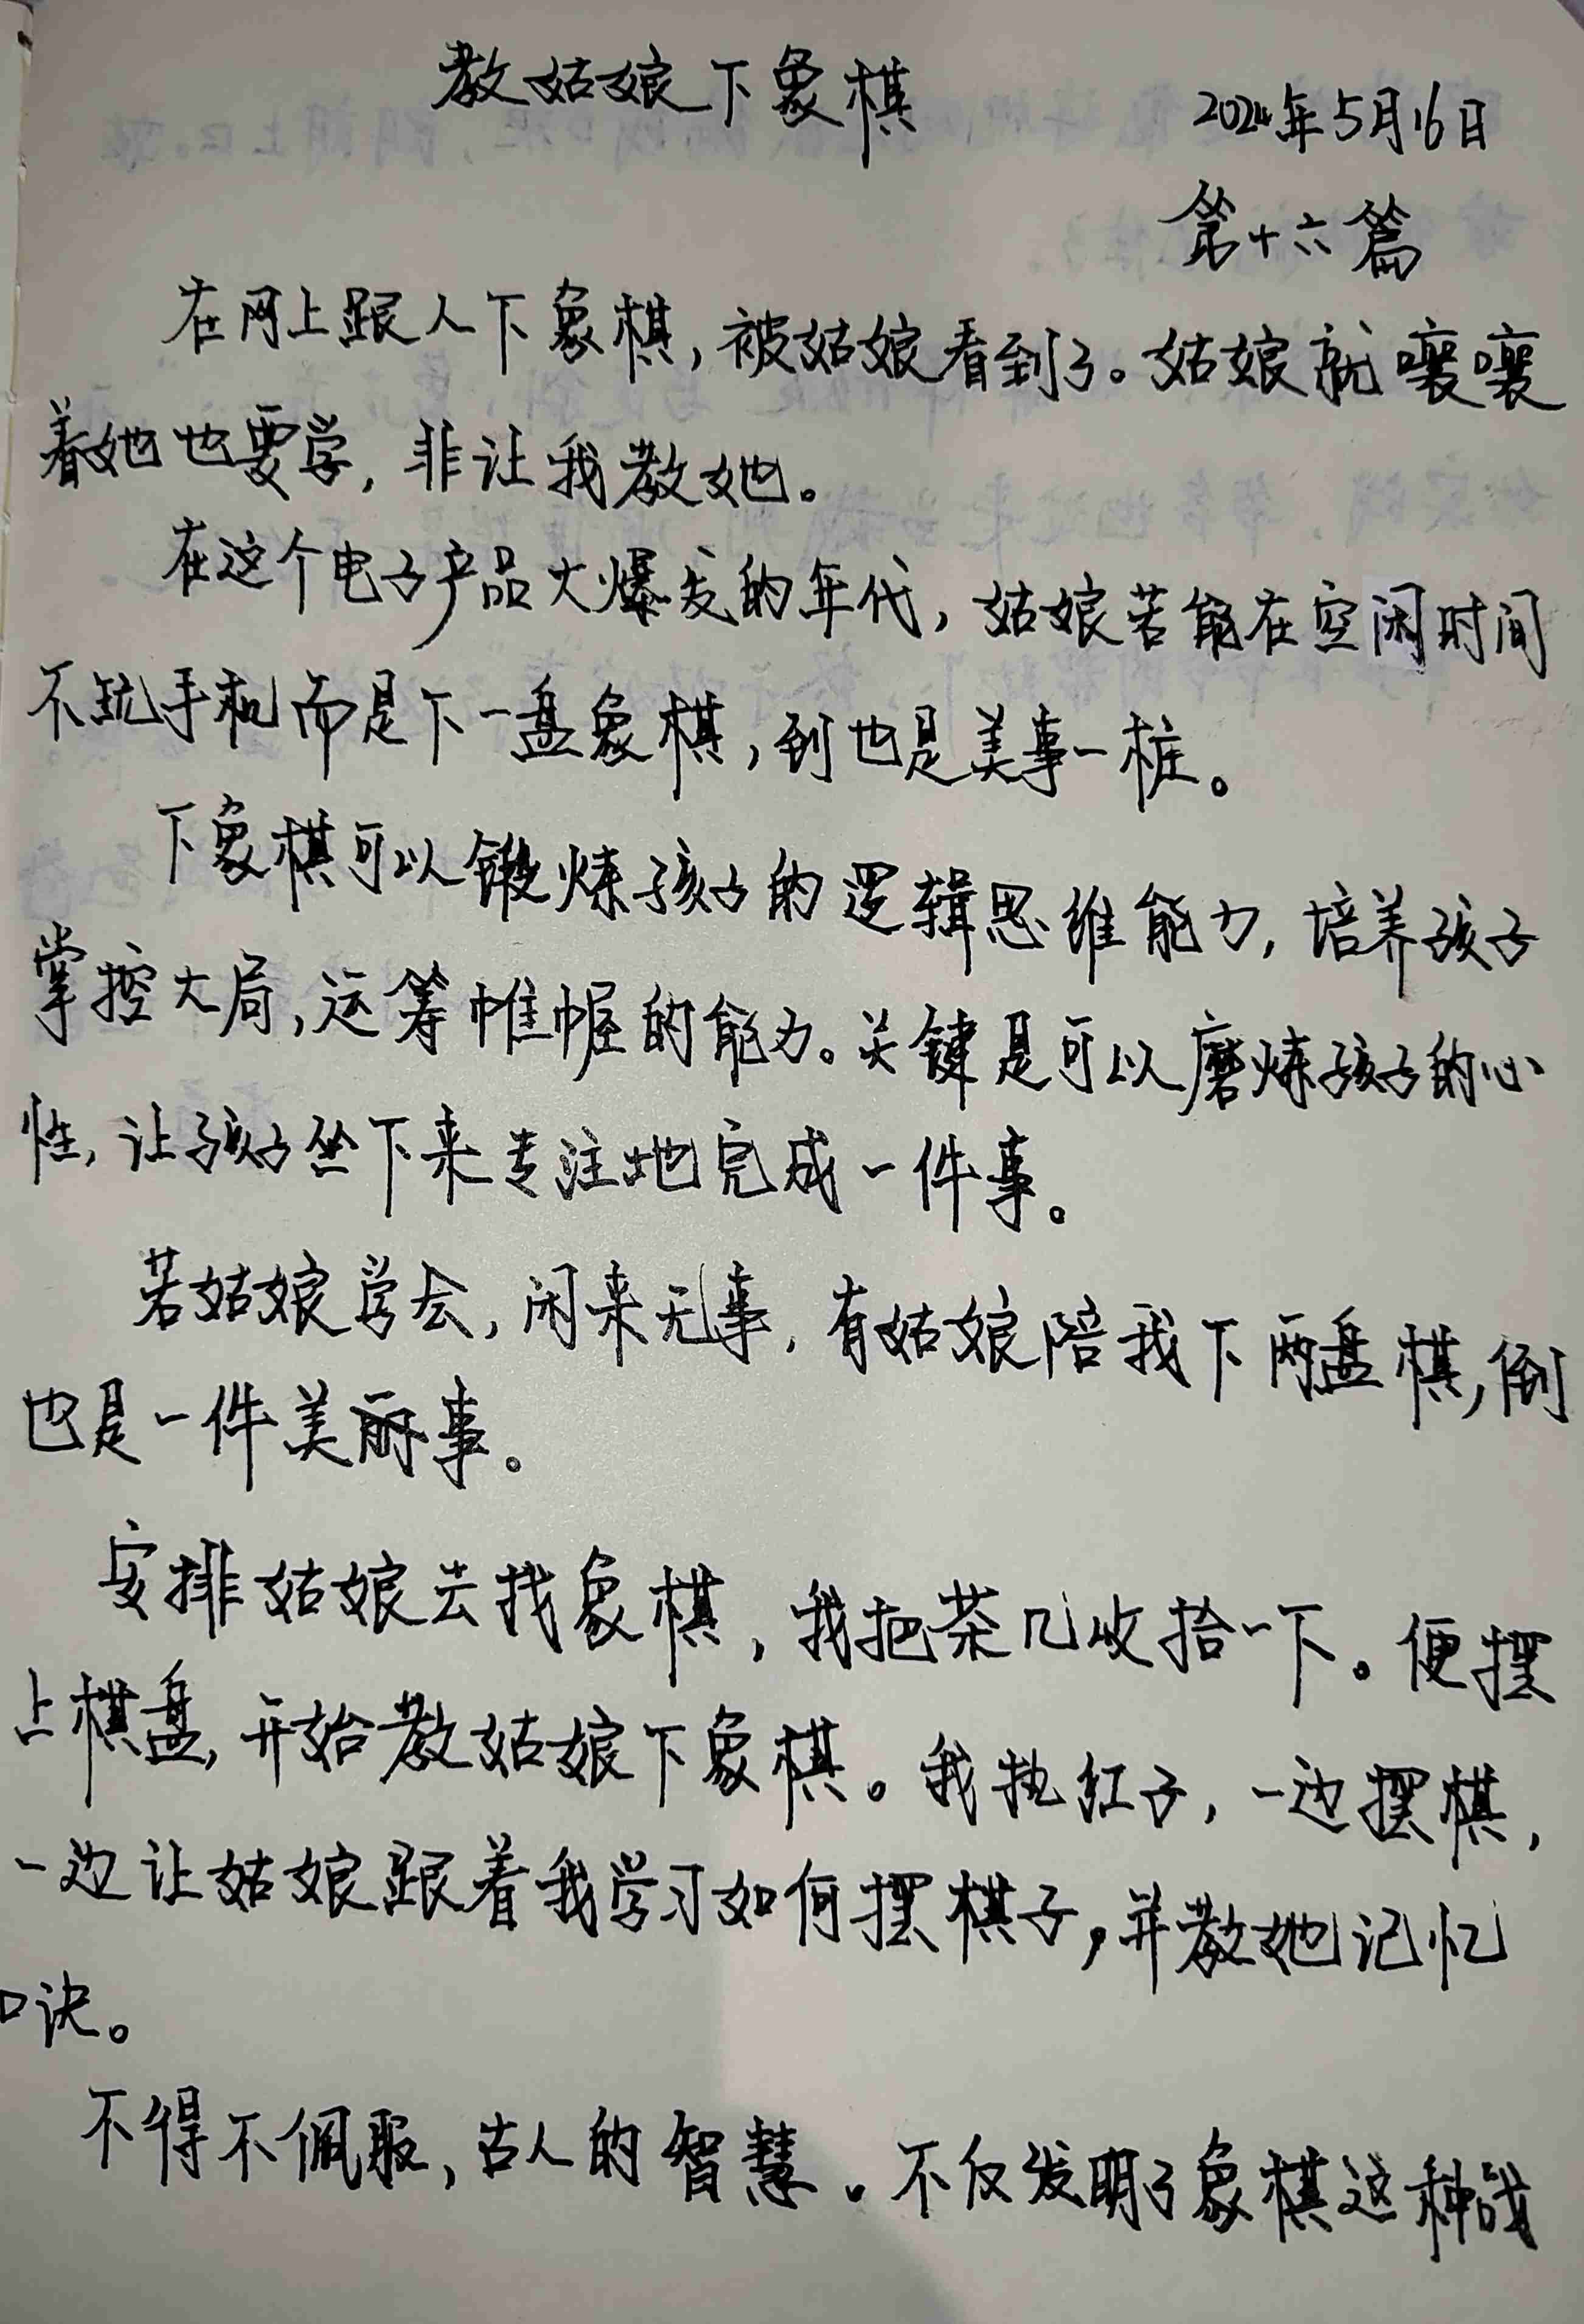 教姑娘下象棋
2024年5月16日
第十六篇
在网上跟人下象棋,被姑娘看到了。姑娘就嚷嚷
着她也要学,非让我教她。
在这个电子产品大爆发的年代,姑娘若能在空闲时间
不玩手机而是下一盘象棋,到也是美事一桩。
下象棋可以锻炼孩子的逻辑思维能力,培养孩子
掌控大局,运筹帷幄的能力。关键是可以磨炼孩子的心
性,让孩子坐下来专注地完成一件事。
若姑娘学会,闲来无事,有姑娘陪我下两盘棋,倒
也是一件美丽事。
安排姑娘去找象棋,我把茶几收拾一下。便摆
上棋盘,开始教姑娘下象棋。我执红子,一边摆棋,
一边让姑娘跟着我学习如何摆棋子,并教她记忆
口诀。
不得不佩服,古人的智慧。不仅发明了象棋这种战